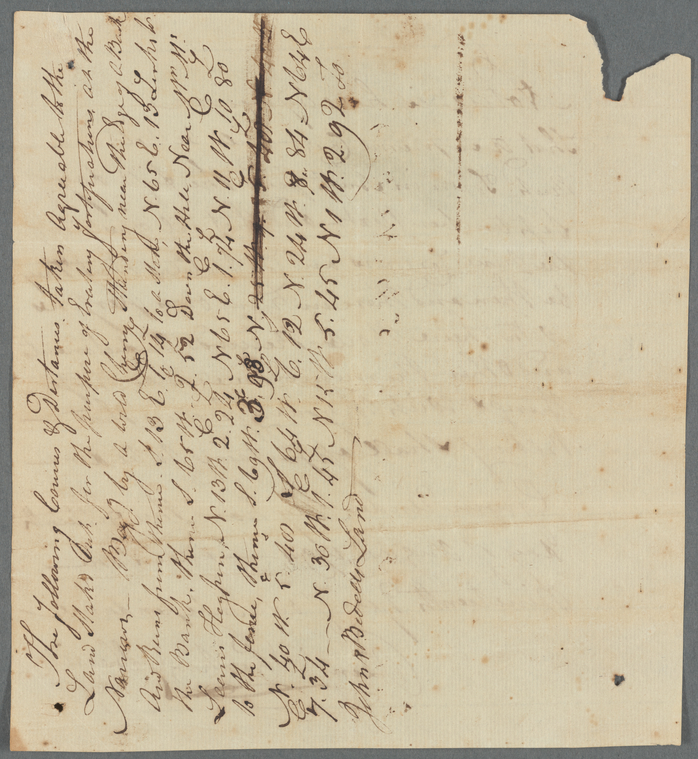 The following Courses & Distances taken Agreeable to the
Land Mark'd Out for the purpose of Erecting Fortifications at the
Narrows — by a wild Cherry Standing near the Edge of a Bank
and Runs from thence S. 13 E. 1. 14 to a Stake, N. 65 E. 13 Links to
the Bank, thence S. 65 W. 2. 52 Down the Hill Near
N. 13 W. 2. 24 N 65 E. 1. 74 N. 11 W. 10 80
to the fence, thence S. 69 W. 3. 98 N.
N 40 W 5. 40 S 64 W 6. 12 N. 24 W. 8. 84 N 64 E
7. 34 — N. 36 W. 1. 45 N 15 W. 5. 45 N 1 W. 2. 92 to
John Bedells Land